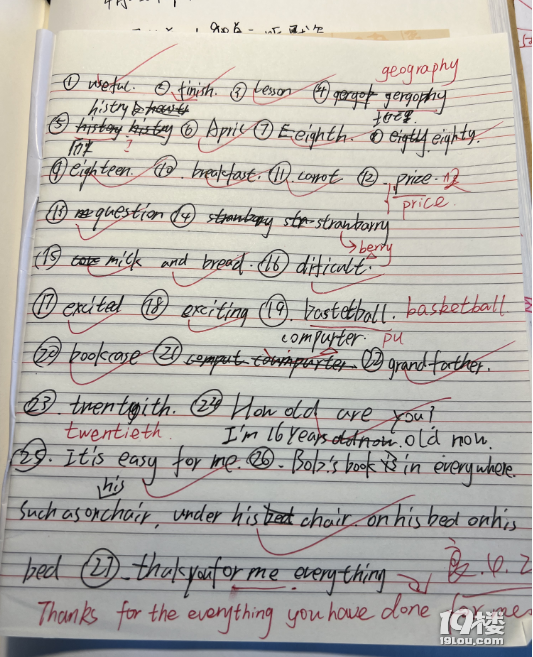 geography
① useful. ② finish. ③ Lesson ④ gergophy
histry
⑤ histroy histry ⑥ Apric ⑦ Eeighth. ⑧ eighty.
⑨ eighteen. ⑩ breakfast. ⑪ carrot ⑫ prize.
price.
⑬ question ⑭ stranbarry
berry
⑮ mick and bread. ⑯ dificult.
⑰ excited ⑱ exciting ⑲ bastetball. basketball
compurter. pu
⑳ bookcase ㉑ ㉒ grandfarther.
㉓ twentyith. ㉔ How old are you?
twentieth. I'm 16 Years old now.
㉕. It is easy for me. ㉖. Bob's book is in everywhere.
his
Such as on chair, under his chair. on his bed on his
bed ㉗ thakyou for me everything
Thanks for the everything you have done for me
19楼
19lou.com